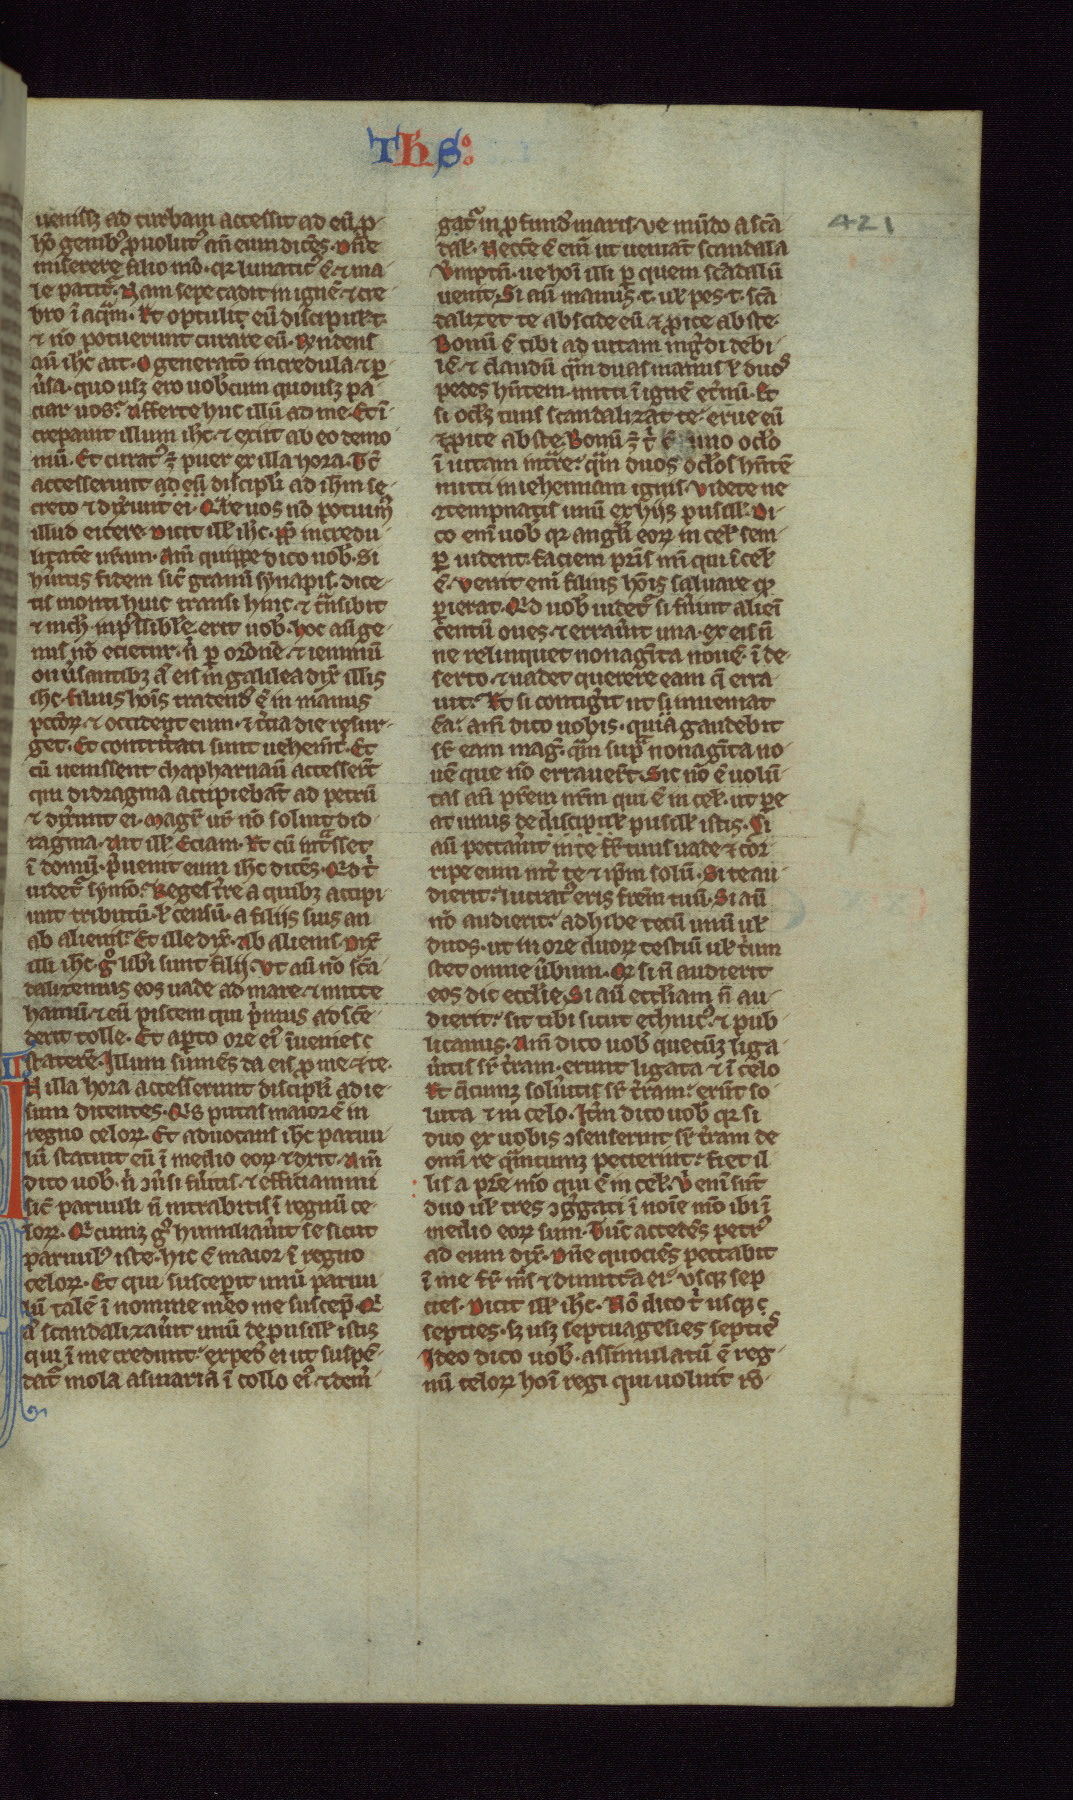 ThS
421
uenissꝫ ad turbam accessit ad eū p̄
ho genibꝰ ꝓuolutꝰ an̄ eum dicēs. Dn̄e
miserere filio meo. qr lunaticꝰ ē ⁊ ma
le patit᷑. Nam sepe cadit in ignē ⁊ cre
bro ī aqᷓm. Et optuli eū discipul᷑ t.
⁊ nō potuerunt curare eū. Rn̄dens
aū ihc ait. O generatō incredula ⁊ ꝑ
ū̓sa. quo usꝫ ero uobcum quousꝫ pa
ciar uos. Afferte huc illū ad me. Et ī
crepauit illum ihc. ⁊ exiit ab eo demo
niū. Et curatꝰ ꝫ puer ex illa hora. Tc̄
accesserunt ad eū discipl̄i ad ihm se
creto ⁊ dix̄unt ei. Qr̄e nos nō potuim᷒
illud eicere. Dicit ill᷑ ihc. Ꝓꝑ incredu
litatē ur̄am. Am̄ quippe dico uob. Si
hūitis fidem sic̄ granū synapis. dice
tis monti huic transi hinc. ⁊ tᷓnsibit
⁊ nich. inp̄ssibile erit uob. hoc aū ge
nus nō eicietur. n̓ ꝑ ordnē. ⁊ ieiuniū
on ū̓santibꝫ aū eis in galilea dix̄ illis
ihc. filius hōis tradendꝰ ē in manus
pccōꝝ. ⁊ occident eum. ⁊ tc̓ia die resur
get. Et contristati sunt uehem̄t. Et
cū uenissent chapharnaū accesser̄t
qui didragma accipiebāt ad petrū
⁊ dix̄unt ei. Magr̄ ur̄ nō soluit did
ragma. Ait ill᷑. Eciam. Et cū intᷓsset
ī domū. p̓uenit eum ihc dicēs. Qd t̓
uidet᷑ symō. Reges tr̄e a quibꝫ accipi
unt tributū. l᷑ censū. a filiis suis an
ab alienis. Et ille dix̄. Ab alienis. Dix̄
illi ihc. gͦ liberi sunt filij. Vt aū nō scā
dalizemus eos uade ad mare. ⁊ mitte
hamū. ⁊ eū piscem qui p̓mus ascē
derit tolle. Et aperto ore eiꝰ īuenies
staterē. Illum sumēs da eis ꝓ me ⁊ te.
IN illa hora accesserunt discipl̄i ad ie
sum dicentes. Qis putas maior ē in
regno celoꝝ. Et aduocans ihc paruu
lū statuit eū ī medio eoꝝ ⁊ dixit. Am̄
dico uob. n̓ ꝯū̓si fūitis. ⁊ efficiamini
sic̄ paruuli n̄ intrabitis ī regnū ce
loꝝ. Qicunqꝫ gͦ humiliau̓it se sicut
paruulꝰ iste. hic ē maior ī regno
celoꝝ. Et qui suscepit unū paruu
lū talē ī nomine meo me suscep̄. Qi
aū scandalizau̓it unū de pusill᷑ istis
qui ī me credunt. exped᷑ ei ut suspē
dat᷑ mola asinaria ī collo eiꝰ ⁊ dem̓
gat᷑ in ꝓfund᷑ maris. Ve mūdo a scā
dal᷑. Necce ē eni ut ueniāt scandala
Vmptn̄. ue hoi illi ꝑ quem scādalū
uenit. Si aū manus t. ul᷑ pes. t. scā
dalizet te abscide eū ⁊ ꝓice abs te.
Bonū ē tibi ad uitam ing̓di debi
lē. ⁊ claudū qᷓm duas manus l᷑ duoꝰ
pedes hn̄tem. mitti ī ignē et̓nū. Et
si oclꝫ tuus scandalizat te. erue eū
⁊ ꝓice abs te. Bonū ꝫ t̓ ē uno oclo
ī uitam intᷓre. qᷓm duos oclos hn̄tē
mitti in iehennam ignis. Videte ne
⁊tempnatis unū ex hijs pusill᷑. Di
co eni uob. qr angl̄i eoꝝ in cel᷑ sem
ꝑ uident. faciem pr̄is mi qui ī cel᷑
ē. Venit eni filius hōis saluare qd
ꝑierat. Qd uob uidet᷑ si fūint alicui
centū oues. ⁊ errau̓it una. ex eis n̄
ne relinquet nonagīta nouē ī de
serto. ⁊ uadet querere eam q̄ erra
uit. Et si contig̓it ut inueniat
eā. am̄ dico uobis. quia gaudebit
sr̄ eam mag᷒. qᷓm supᷓ nonagīta no
uē que nō errauer̄t. Sic nō ē uolū
tas an̄ pr̄em ur̄m qui ē in cel᷑. ut pe
at unus de discipul᷑ pusill᷑ istis. Si
aū peccau̓it in te fr̄ tuus uade ⁊ cor
ripe eum int̓ te ⁊ ip̄m solū. Si te au
dierit. lucratꝰ eris fr̄em tuū. Si aū
nō audierit. adhibe tecū unū ul᷑
duos. ut in ore duoꝝ testiū ul᷑ t̓ium
stet omne ūbum. Qd si n̄ audierit
eos dic ecclie. Si aū eccliam n̄ au
dierit. sit tibi sicut ethnicꝰ. ⁊ pub
licanus. Am̄ dico uob quecūqꝫ liga
ūitis sr̄ tr̄am. erunt ligata ⁊ ī celo
Et q̄cumqꝫ solūitis sr̄ tr̄am. erūt so
luta ⁊ in celo. Itm̄ dico uob qr si
duo ex uobis ꝯsenserint sr̄ tr̄am de
omi re qᷓmcumqꝫ pecierint. fiet il
lis a pr̄e mō qui ē in cel᷑. Ubi eni sūt
duo ul᷑ tres ꝯgᷓgati ī noie mō ibi ī
medio eoꝝ sum. Tūc accedēs petrꝰ
ad eum dix̄. Dn̄e quociēs peccabit
ī me fr̄ ms ⁊ dimittā ei. usqꝫ sep
cies. Dicit ill᷑ ihc. Nō dico t̓ usqꝫ
septies. sꝫ usqꝫ septuagesies septiēs
Ideo dico uob. assimulatū ē reg
nū celoꝝ hoi regi qui uoluit rō